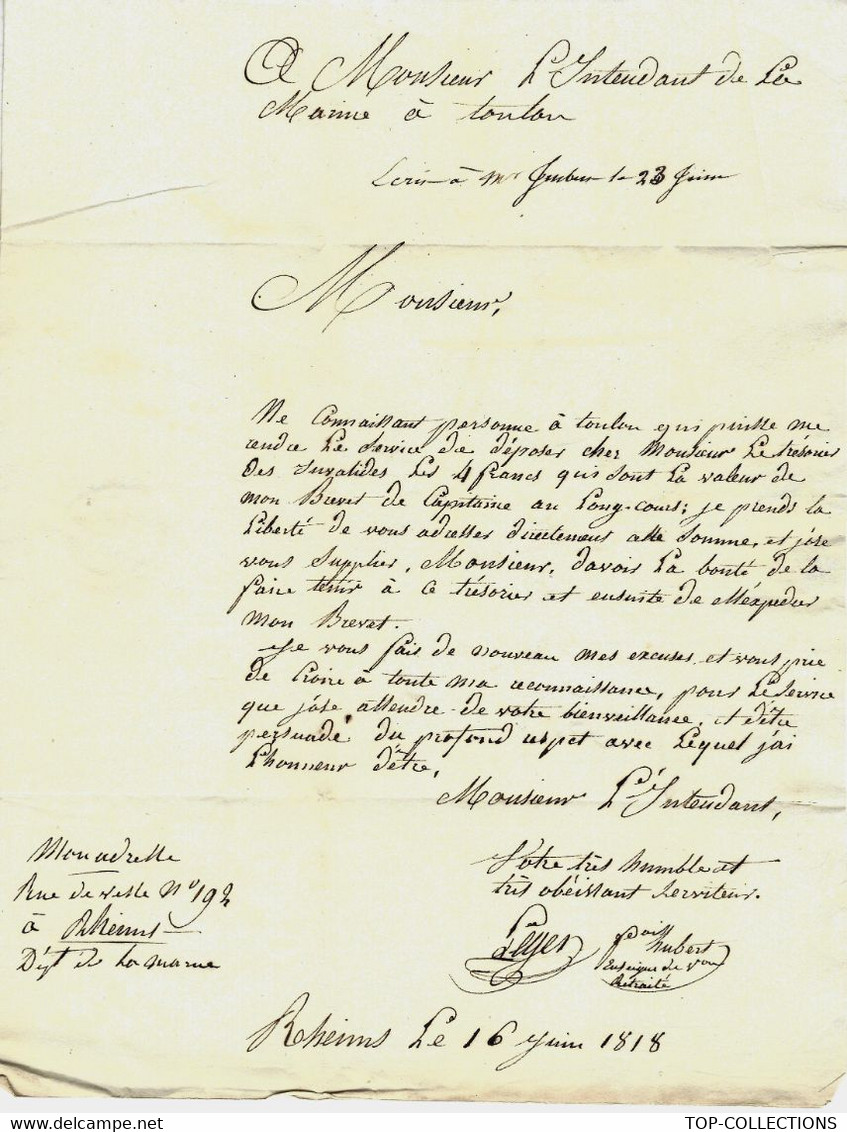 A Monsieur L'Intendant de La
Marine à toulon
Ecris à Mr le 23 Juin
Monsieur,
Ne Connaissant personne à toulon qui puisse me
rendre Le Service de déposer chez Monsieur Le trésorier
des Invalides Les 4 francs qui sont La valeur de
mon Brevet de Capitaine au Long-cours; je prends la
Liberté de vous adresser directement cette Somme, et j'ose
vous Supplier, Monsieur, davoir La bonté de la
faire tenir à ce trésorier et ensuite de M'expedier
mon Brevet.
Je vous fais de nouveau mes excuses, et vous prie
de Croire à toute ma reconnaissance, pour Le Service
que j'ose attendre de votre bienveillance, et d'être
persuadé du profond respet avec Lequel j'ai
L'honneur d'être,
Monsieur L'Intendant,
Votre très humble et
très obéissant Serviteur.
Mon adresse
Rue de vesle No 192
à Rheims
Dépt de la marne
hubert
Enseigne de Vau
Retraité
Rheims Le 16 Juin 1818
TOP-COLLECTIONS